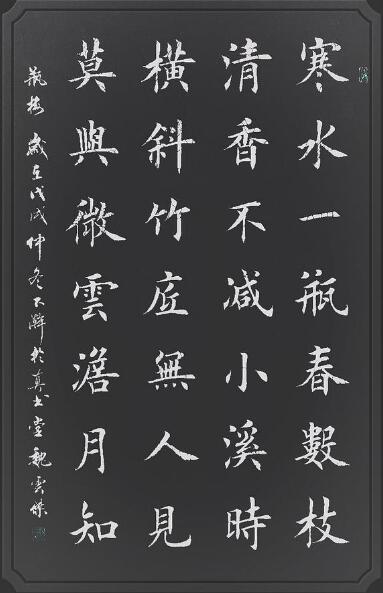 寒水一瓶春數枝
清香不減小溪時
橫斜竹底無人見
莫與微雲澹月知
瓶梅 歲在戊戌仲冬不辭於真書堂 魏雲傑